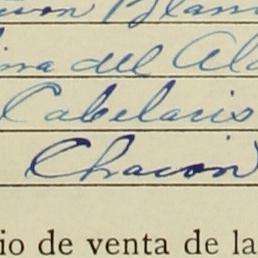 Blan
del Al
Cabelaris
Chacon
io de venta de la